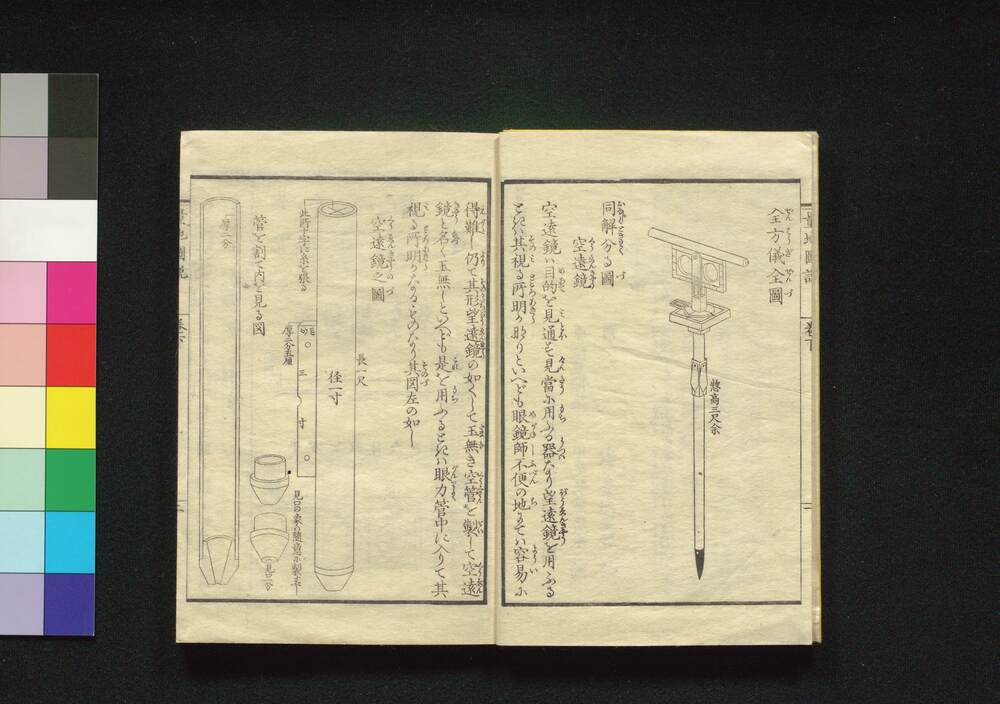 全方儀全圖
惣高三尺余
同解分る圖
空遠鏡
空遠鏡ハ目的を見通を見當に用ふる器なり望遠鏡を用ふる
ときハ其視る所明かなりといへども眼鏡師不便の地にてハ容易に
得難し仍て其形望遠鏡の如くして玉無き空管を製して空遠
鏡と名く玉無しといへども是を用ふるときハ眼力管中に入りて其
視る所明かなるものなり其図左の如し
空遠鏡之圖
長一尺
径一寸
此所十字に糸を張る
三寸
厚三分五厘
管を割て内を見る図
厚一分
見口一分